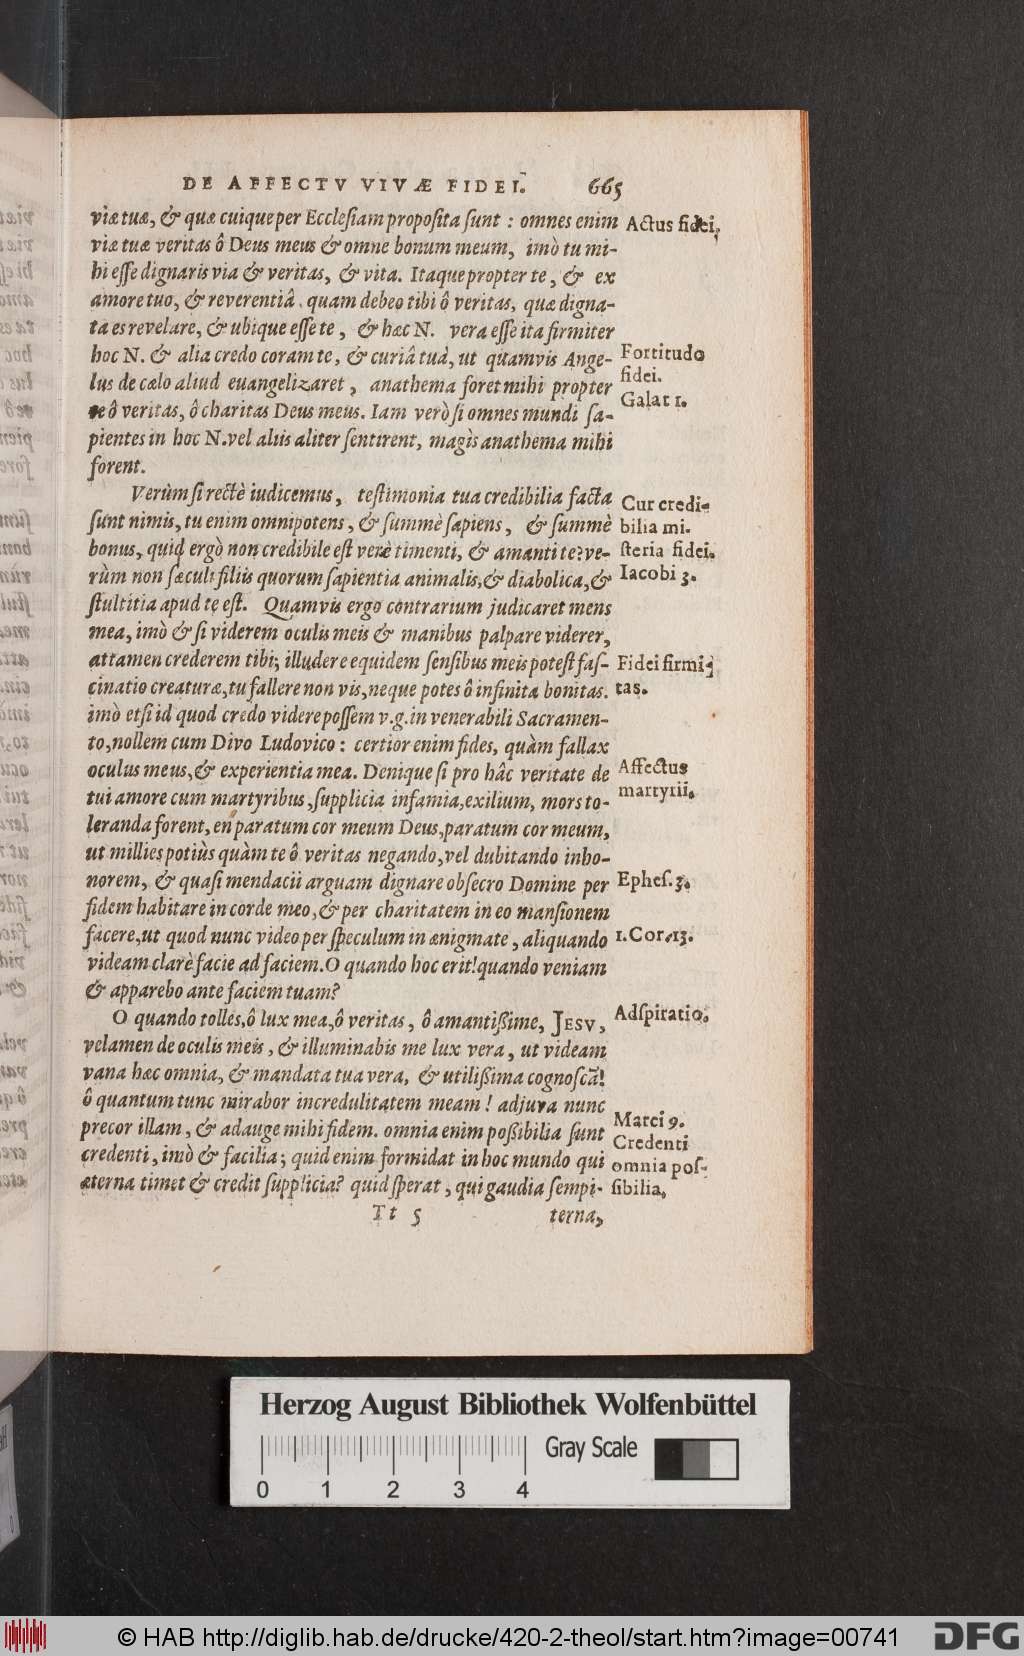 DE AFFECTV VIVÆ FIDEI. 665
viæ tuæ, & quæ cuique per Ecclesiam proposita sunt : omnes enim
Actus fidei,
viæ tuæ veritas ô Deus meus & omne bonum meum, imò tu mi-
hi esse dignaris via & veritas, & vita. Itaque propter te, & ex
amore tuo, & reverentiâ, quam debeo tibi ô veritas, quæ digna-
ta es revelare, & ubique esse te, & hæc N. vera esse ita firmiter
hoc N. & alia credo coram te, & curiâ tuâ, ut quamvis Ange-
Fortitudo
fidei.
lus de cælo aliud euangelizaret, anathema foret mihi propter
Galat 1.
te ô veritas, ô charitas Deus meus. Iam verò si omnes mundi sa-
pientes in hoc N. vel aliis aliter sentirent, magìs anathema mihi
forent.
Verùm si rectè iudicemus, testimonia tua credibilia facta
Cur credi-
sunt nimis, tu enim omnipotens, & summè sapiens, & summè
bilia mi-
bonus, quid ergò non credibile est verè timenti, & amanti te? ve-
steria fidei.
rùm non sæculi filiis quorum sapientia animalis, & diabolica, &
Iacobi 3.
stultitia apud te est. Quamvis ergo contrarium judicaret mens
mea, imò & si viderem oculis meis & manibus palpare viderer,
attamen crederem tibi; illudere equidem sensibus meis potest fas-
Fidei firmi-
cinatio creaturæ, tu fallere non vis, neque potes ô infinita bonitas.
tas.
imò etsi id quod credo videre possem v.g. in venerabili Sacramen-
to, nollem cum Divo Ludovico : certior enim fides, quàm fallax
oculus meus, & experientia mea. Denique si pro hâc veritate de
Affectus
tui amore cum martyribus, supplicia infamia, exilium, mors to-
martyrii.
leranda forent, en paratum cor meum Deus, paratum cor meum,
ut millies potiùs quàm te ô veritas negando, vel dubitando inho-
norem, & quasi mendacii arguam dignare obsecro Domine per
Ephes. 3.
fidem habitare in corde meo, & per charitatem in eo mansionem
facere, ut quod nunc video per speculum in ænigmate, aliquando
1. Cor. 13.
videam clarè facie ad faciem. O quando hoc erit! quando veniam
& apparebo ante faciem tuam?
O quando tolles, ô lux mea, ô veritas, ô amantißime, JESV,
Adspiratio.
velamen de oculis meis, & illuminabis me lux vera, ut videam
vana hæc omnia, & mandata tua vera, & utilißima cognoscã!
ô quantum tunc mirabor incredulitatem meam! adjuva nunc
precor illam, & adauge mihi fidem. omnia enim poßibilia sunt
Marci 9.
Credenti
credenti, imò & facilia; quid enim formidat in hoc mundo qui
omnia pos-
æterna timet & credit supplicia? quid sperat, qui gaudia sempi-
sibilia.
Tt 5 terna,
Herzog August Bibliothek Wolfenbüttel
Gray Scale
0 1 2 3 4
© HAB http://diglib.hab.de/drucke/420-2-theol/start.htm?image=00741
DFG